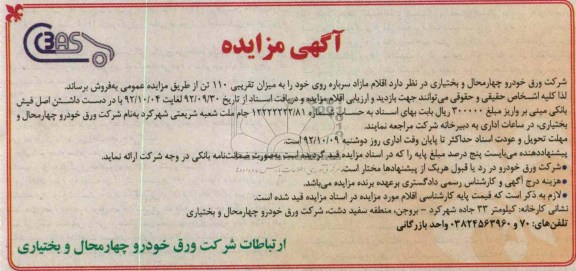 آگهی مزایده
CBAS
شرکت ورق خودرو چهارمحال و بختیاری در نظر دارد اقلام مازاد سرباره روی خود را به میزان تقریبی ۱۱۰ تن از طریق مزایده عمومی به‌فروش برساند.
لذا کلیه اشخاص حقیقی و حقوقی می‌توانند جهت بازدید و ارزیابی اقلام مزایده و دریافت اسناد از تاریخ ۹۲/۰۹/۳۰ لغایت ۹۲/۱۰/۰۴ با در دست داشتن اصل فیش
بانکی مبنی بر واریز مبلغ ۳۰۰۰۰۰ ریال بابت بهای اسناد به حساب شماره ۱۲۲۲۲۲۲۲/۸۱ جام ملت شعبه شریعتی شهرکرد به‌نام شرکت ورق خودرو چهارمحال و
بختیاری، در ساعات اداری به دبیرخانه شرکت مراجعه نمایند.
مهلت تحویل و عودت اسناد حداکثر تا پایان وقت اداری روز دوشنبه ۹۲/۱۰/۰۹ است.
پیشنهاددهنده می‌بایست پنج درصد مبلغ پایه را که در اسناد مزایده قید گردیده است به‌صورت ضمانت‌نامه بانکی در وجه شرکت ارائه نماید.
*شرکت ورق خودرو در رد یا قبول هریک از پیشنهادها مختار است.
*هزینه درج آگهی و کارشناس رسمی دادگستری برعهده برنده مزایده می‌باشد.
*لازم به ذکر است که قیمت پایه کارشناسی اقلام مورد مزایده در اسناد مزایده قید شده است.
نشانی کارخانه: کیلومتر ۳۳ جاده شهرکرد - بروجن، منطقه سفید دشت، شرکت ورق خودرو چهارمحال و بختیاری
تلفن‌های: ۷۰ و ۰۳۸۲۴۵۶۳۹۶۰ واحد بازرگانی
ارتباطات شرکت ورق خودرو چهارمحال و بختیاری